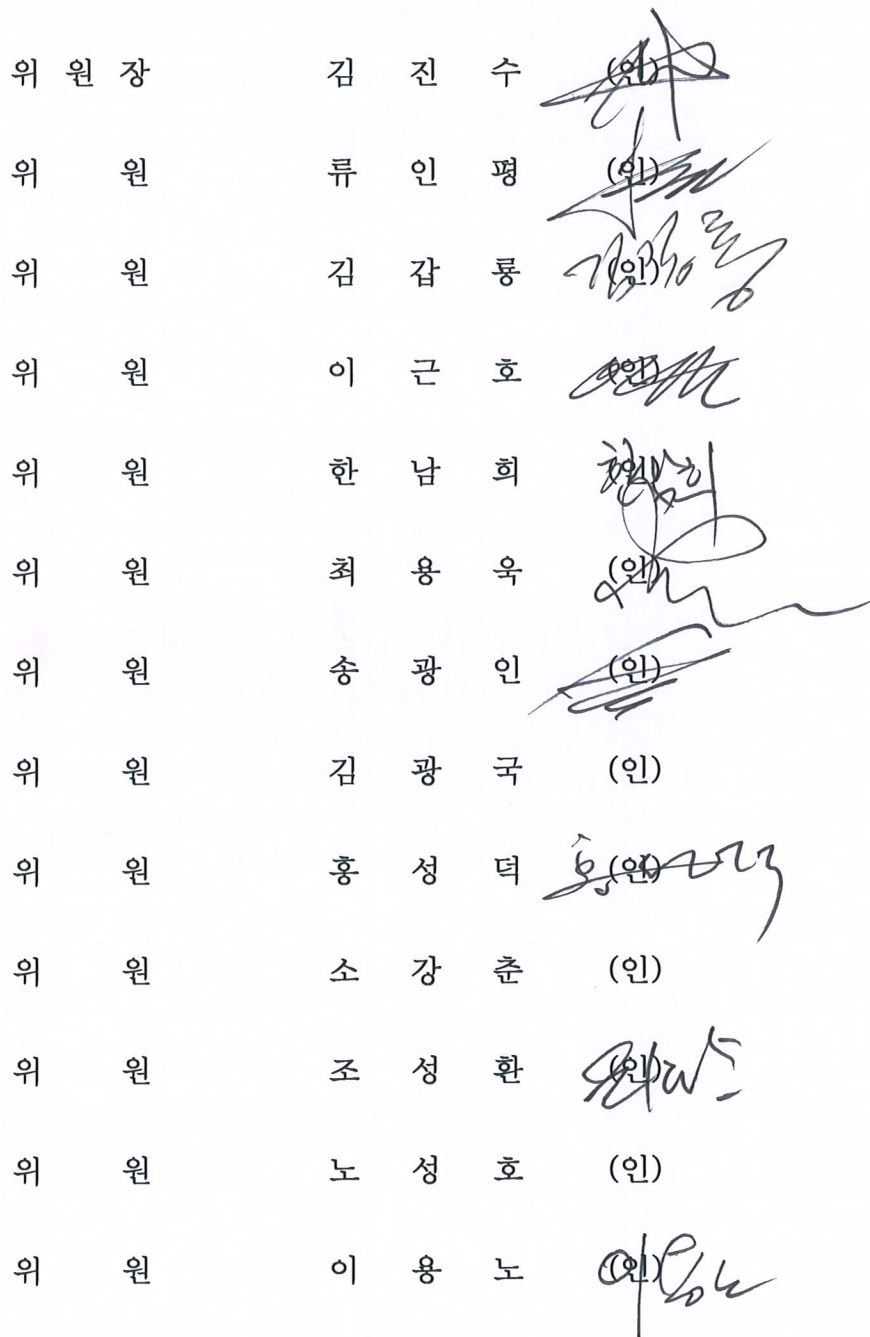 위 원 장 김 진 수 (인)
위 원 류 인 평 (인)
위 원 김 갑 룡 (인)
위 원 이 근 호 (인)
위 원 한 남 희 (인)
위 원 최 용 욱 (인)
위 원 송 광 인 (인)
위 원 김 광 국 (인)
위 원 홍 성 덕 (인)
위 원 소 강 춘 (인)
위 원 조 성 환 (인)
위 원 노 성 호 (인)
위 원 이 용 노 (인)